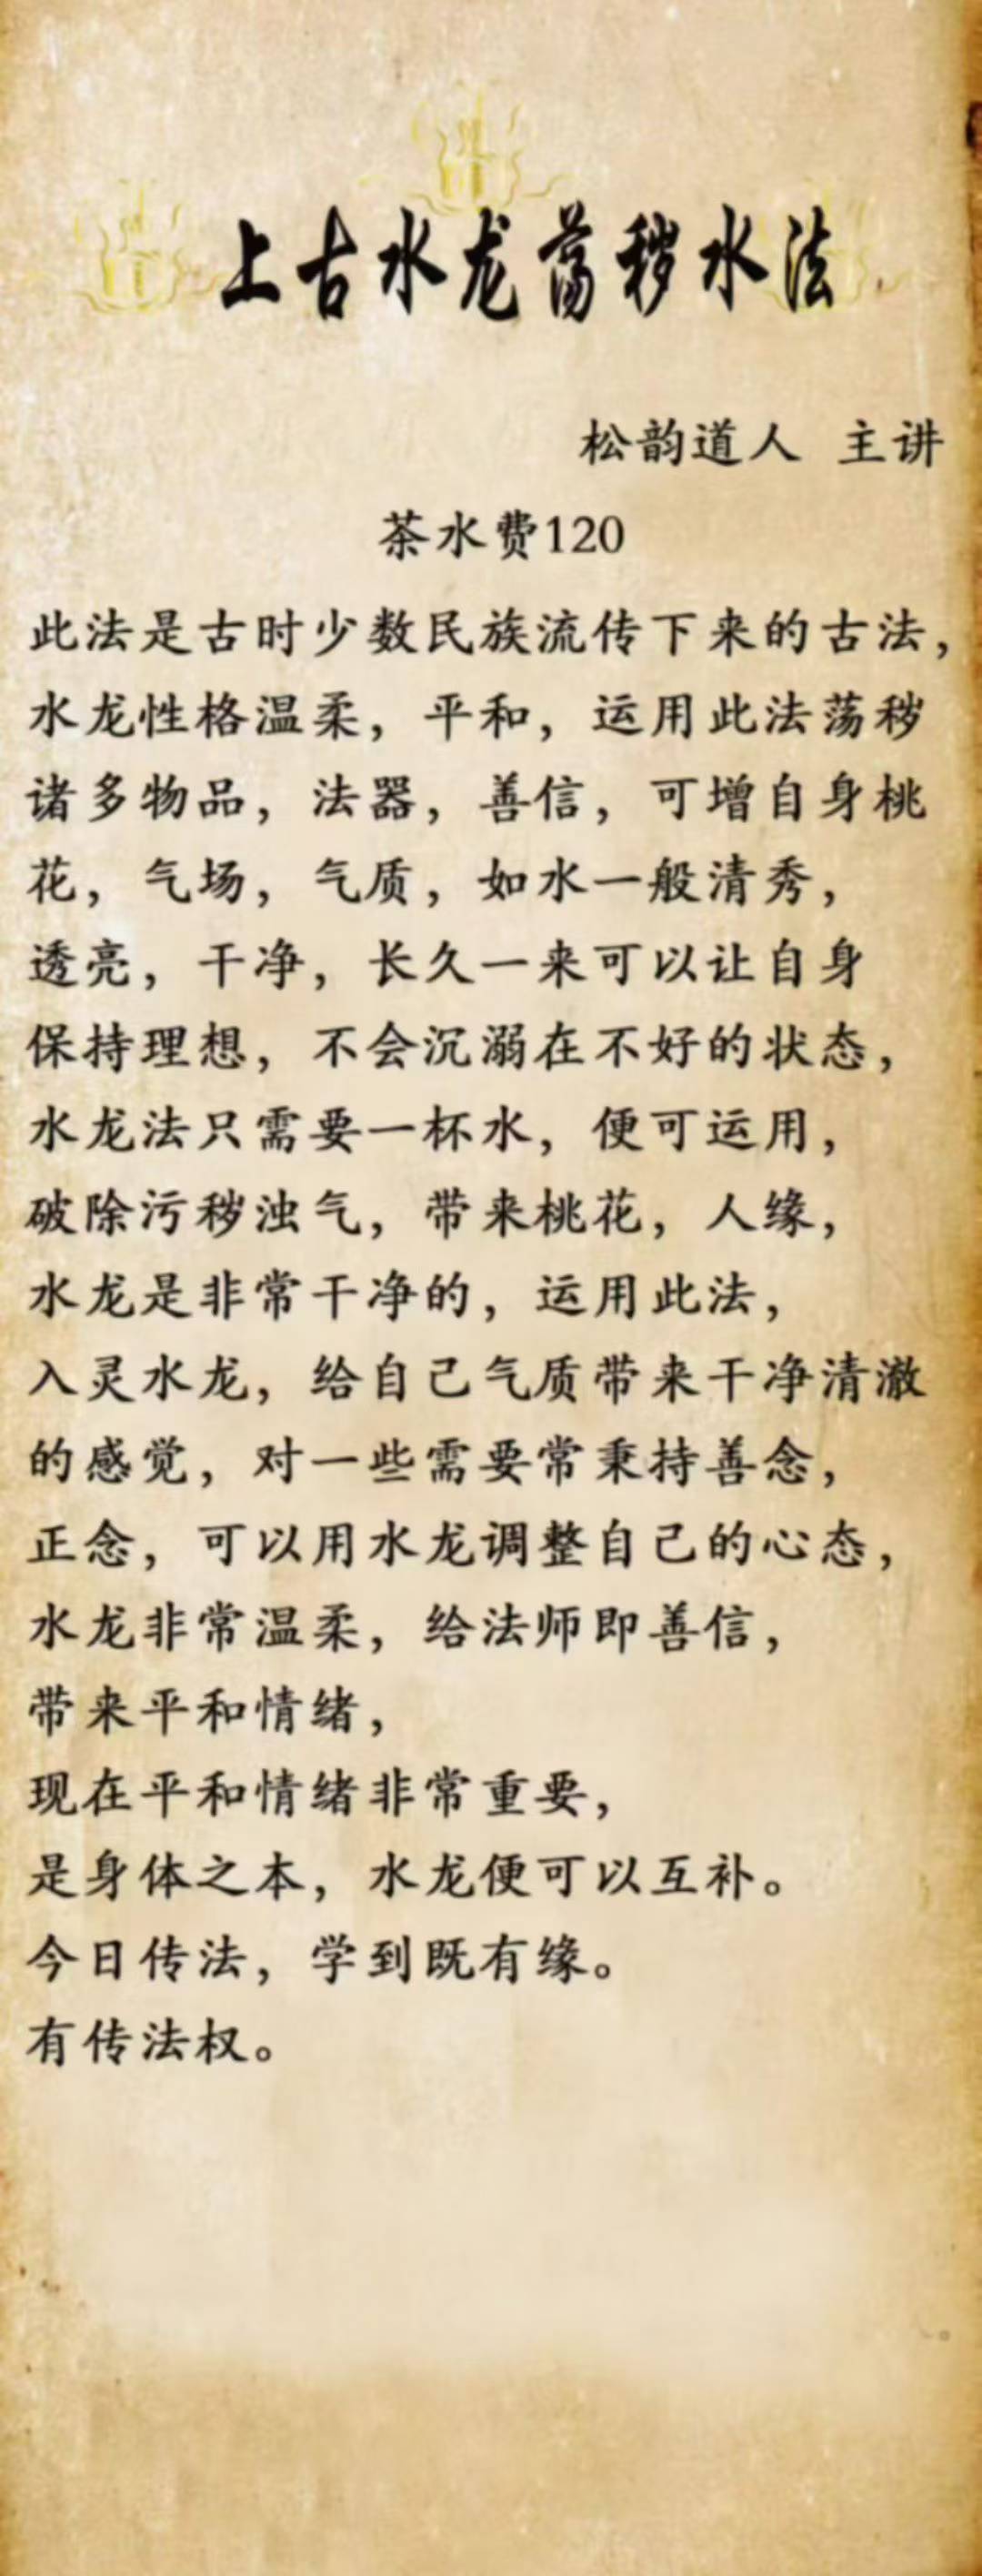 上古水龙荡秽水法
松韵道人 主讲
茶水费120
此法是古时少数民族流传下来的古法，
水龙性格温柔，平和，运用此法荡秽
诸多物品，法器，善信，可增自身桃
花，气场，气质，如水一般清秀，
透亮，干净，长久一来可以让自身
保持理想，不会沉溺在不好的状态，
水龙法只需要一杯水，便可运用，
破除污秽浊气，带来桃花，人缘，
水龙是非常干净的，运用此法，
入灵水龙，给自己气质带来干净清澈
的感觉，对一些需要常秉持善念，
正念，可以用水龙调整自己的心态，
水龙非常温柔，给法师即善信，
带来平和情绪，
现在平和情绪非常重要，
是身体之本，水龙便可以互补。
今日传法，学到既有缘。
有传法权。